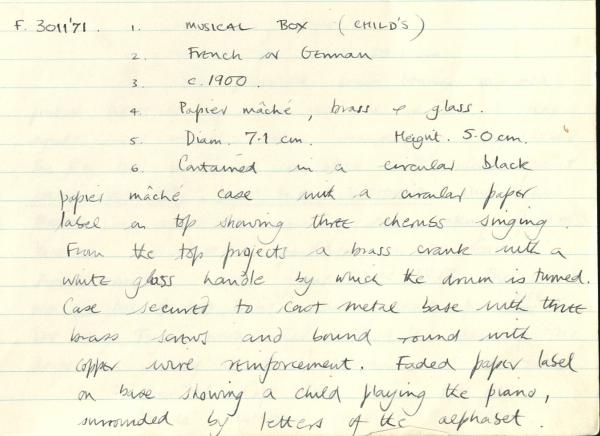 F. 3011'71. 1. MUSICAL BOX (CHILD'S)
2. French or German
3. c.1900.
4. Papier mâché, brass & glass.
5. Diam. 7.1 cm. Height. 5.0 cm.
6. Contained in a circular black
papier mâché case with a circular paper
label on top showing three cherubs singing.
From the top projects a brass crank with a
white glass handle by which the drum is turned.
Case secured to cast metal base with three
brass screws and bound round with
copper wire reinforcement. Faded paper label
on base showing a child playing the piano,
surrounded by letters of the alphabet.